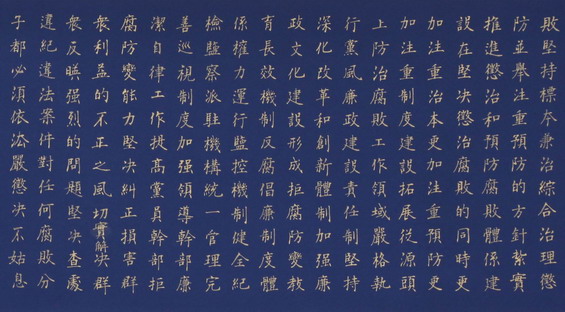 敗堅持標本兼治綜合治理懲
防並舉注重預防的方針紮實
推進懲治和預防腐敗體係建
設在堅决懲治腐敗的同時更
加注重治本更加注重預防更
加注重制度建設拓展從源頭
上防治腐敗工作領域嚴格執
行黨風廉政建設責任制堅持
深化改革和創新體制加强廉
政文化建設形成拒腐防變教
育長效機制反腐倡廉制度體
係權力運行監控機制健全紀
檢監察派駐機構統一管理完
善巡視制度加强領導幹部廉
潔自律工作提高黨員幹部拒
腐防變能力堅决糾正損害群
衆利益的不正之風切實解决群
衆反映强烈的問題堅决查處
違紀違法案件對任何腐敗分
子都必須依法嚴懲决不姑息